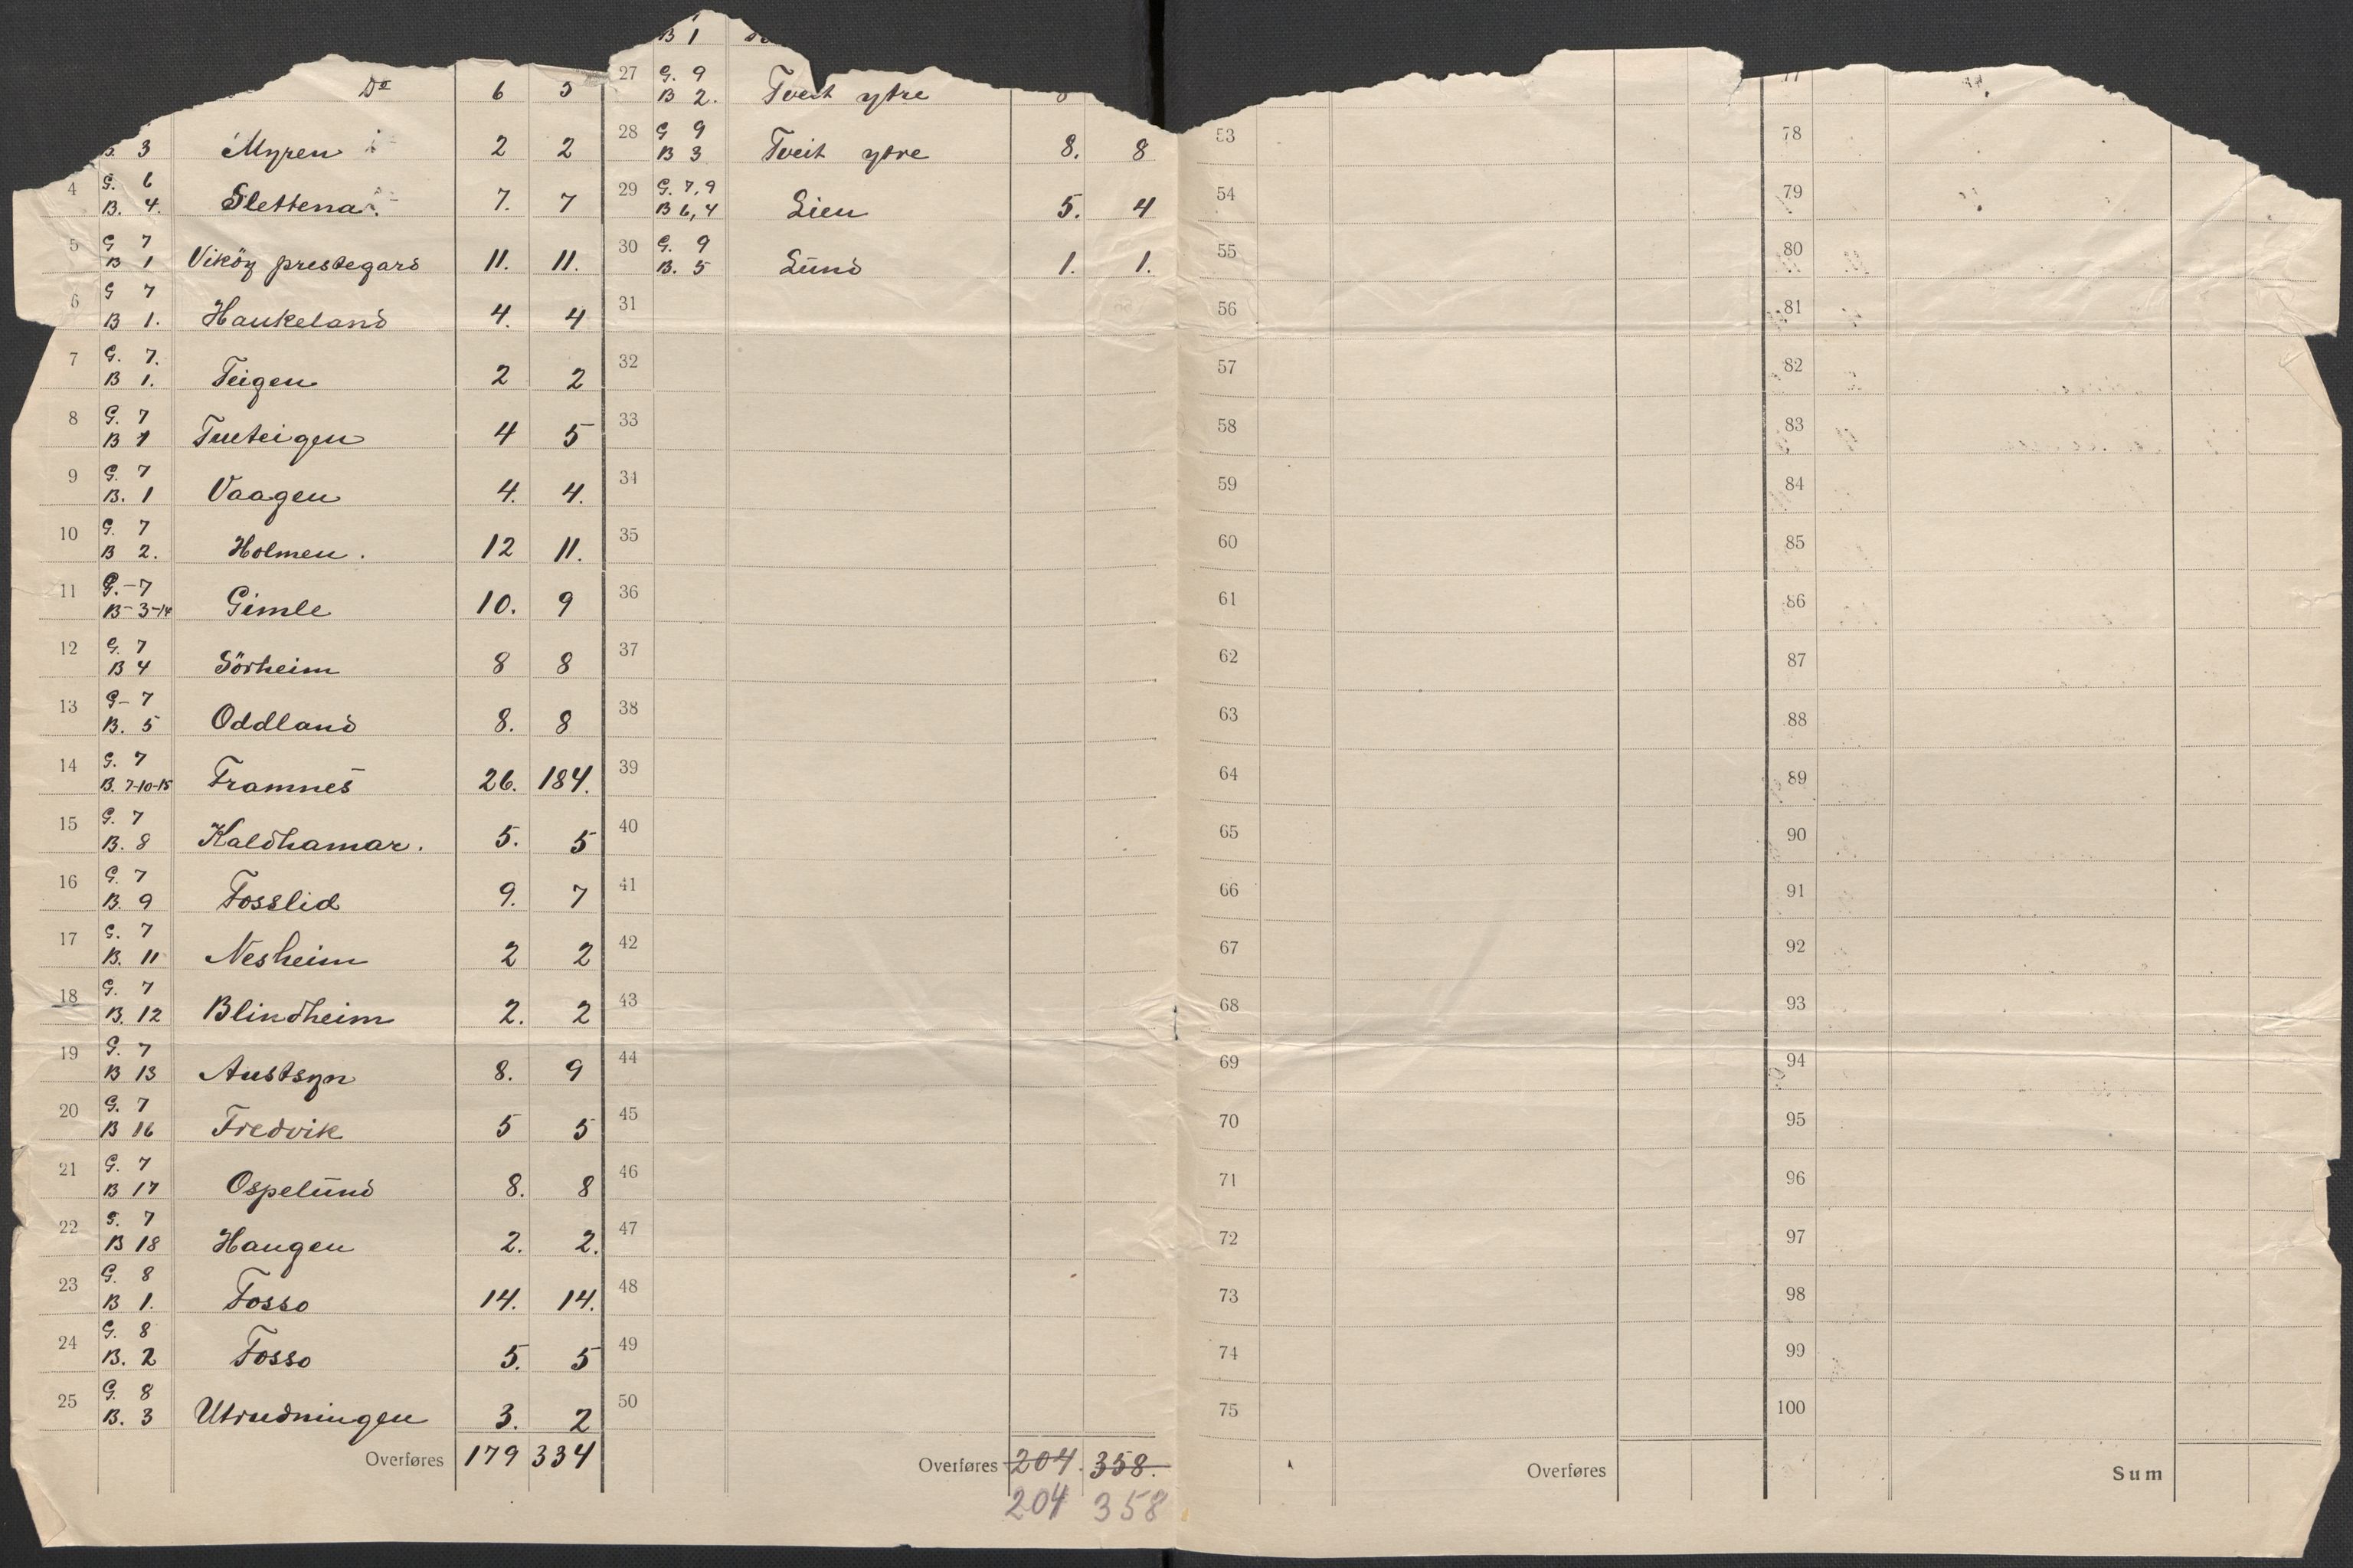 Do 6 5
B. 3 Myren 2 2
4 G. 6 B. 4. Slettena 7. 7
5 G 7 B 1 Viköy prestegard 11. 11.
6 G 7 B 1. Haukeland 4. 4
7 G. 7. B 1. Teigen 2 2
8 G. 7 B 1 Tueteigen 4 5
9 G. 7 B. 1 Vaagen 4. 4.
10 G. 7 B 2. Holmen. 12 11.
11 G.-7 B-3-14 Gimle 10. 9
12 G. 7 B 4 Sörheim 8 8
13 G- 7 B. 5 Oddland 8. 8
14 G. 7 B. 7-10-15 Framnes 26. 184.
15 G. 7 B. 8 Kaldhamar. 5. 5
16 G. 7 B. 9 Fosslid 9. 7
17 G. 7 B. 11 Nesheim 2 2
18 G. 7 B. 12 Blindheim 2. 2
19 G. 7 B 13 Austsyn 8. 9
20 G. 7 B 16 Fredvik 5 5
21 G. 7 B 17 Ospelund 8. 8
22 G. 7 B 18 Haugen 2. 2.
23 G. 8 B 1. Fosso 14. 14.
24 G. 8 B. 2 Fosso 5. 5
25 G. 8 B. 3 Utrudningen 3. 2
Overføres 179 334
B 1
27 G. 9 B 2. Tveit ytre
28 G 9 B 3 Tveit ytre 8. 8
29 G. 7, 9 B 6, 4 Lien 5. 4
30 G. 9 B. 5 Lund 1. 1.
31
32
33
34
35
36
37
38
39
40
41
42
43
44
45
46
47
48
49
50
Overføres 204. 358.
204 358
53
54
55
56
57
58
59
60
61
62
63
64
65
66
67
68
69
70
71
72
73
74
75
Overføres
77
78
79
80
81
82
83
84
85
86
87
88
89
90
91
92
93
94
95
96
97
98
99
100
Sum